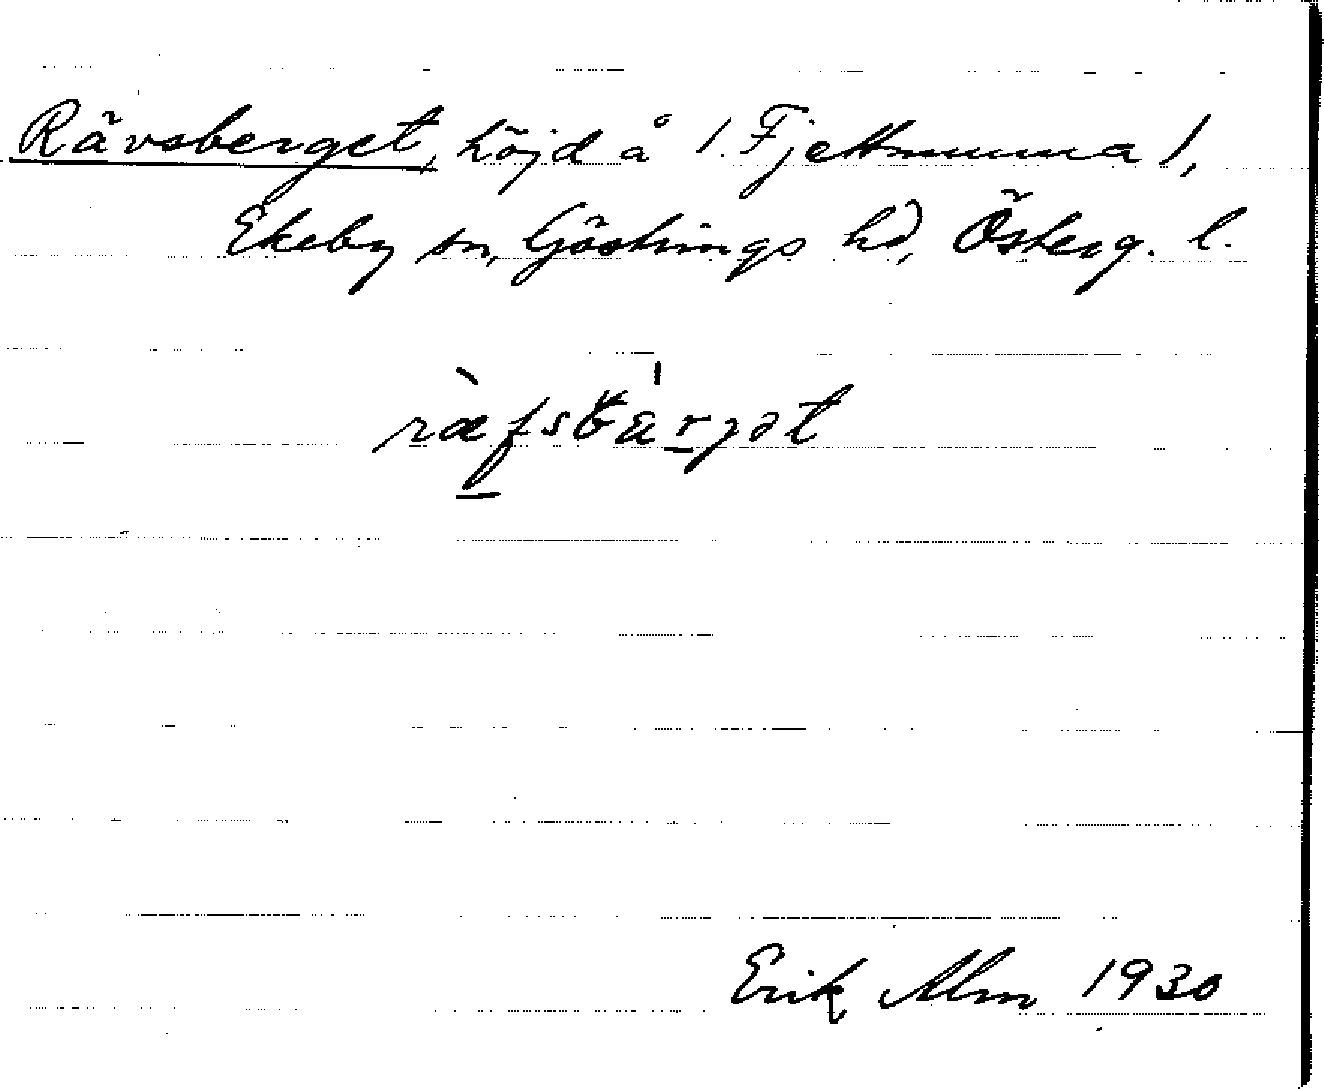 Rävsberget, höjd å 1. Fjettmunna 1,
Ekeby sn, Göstrings hd, Österg. l.
ræ̀fsbä̍rjət
Erik Alm 1930